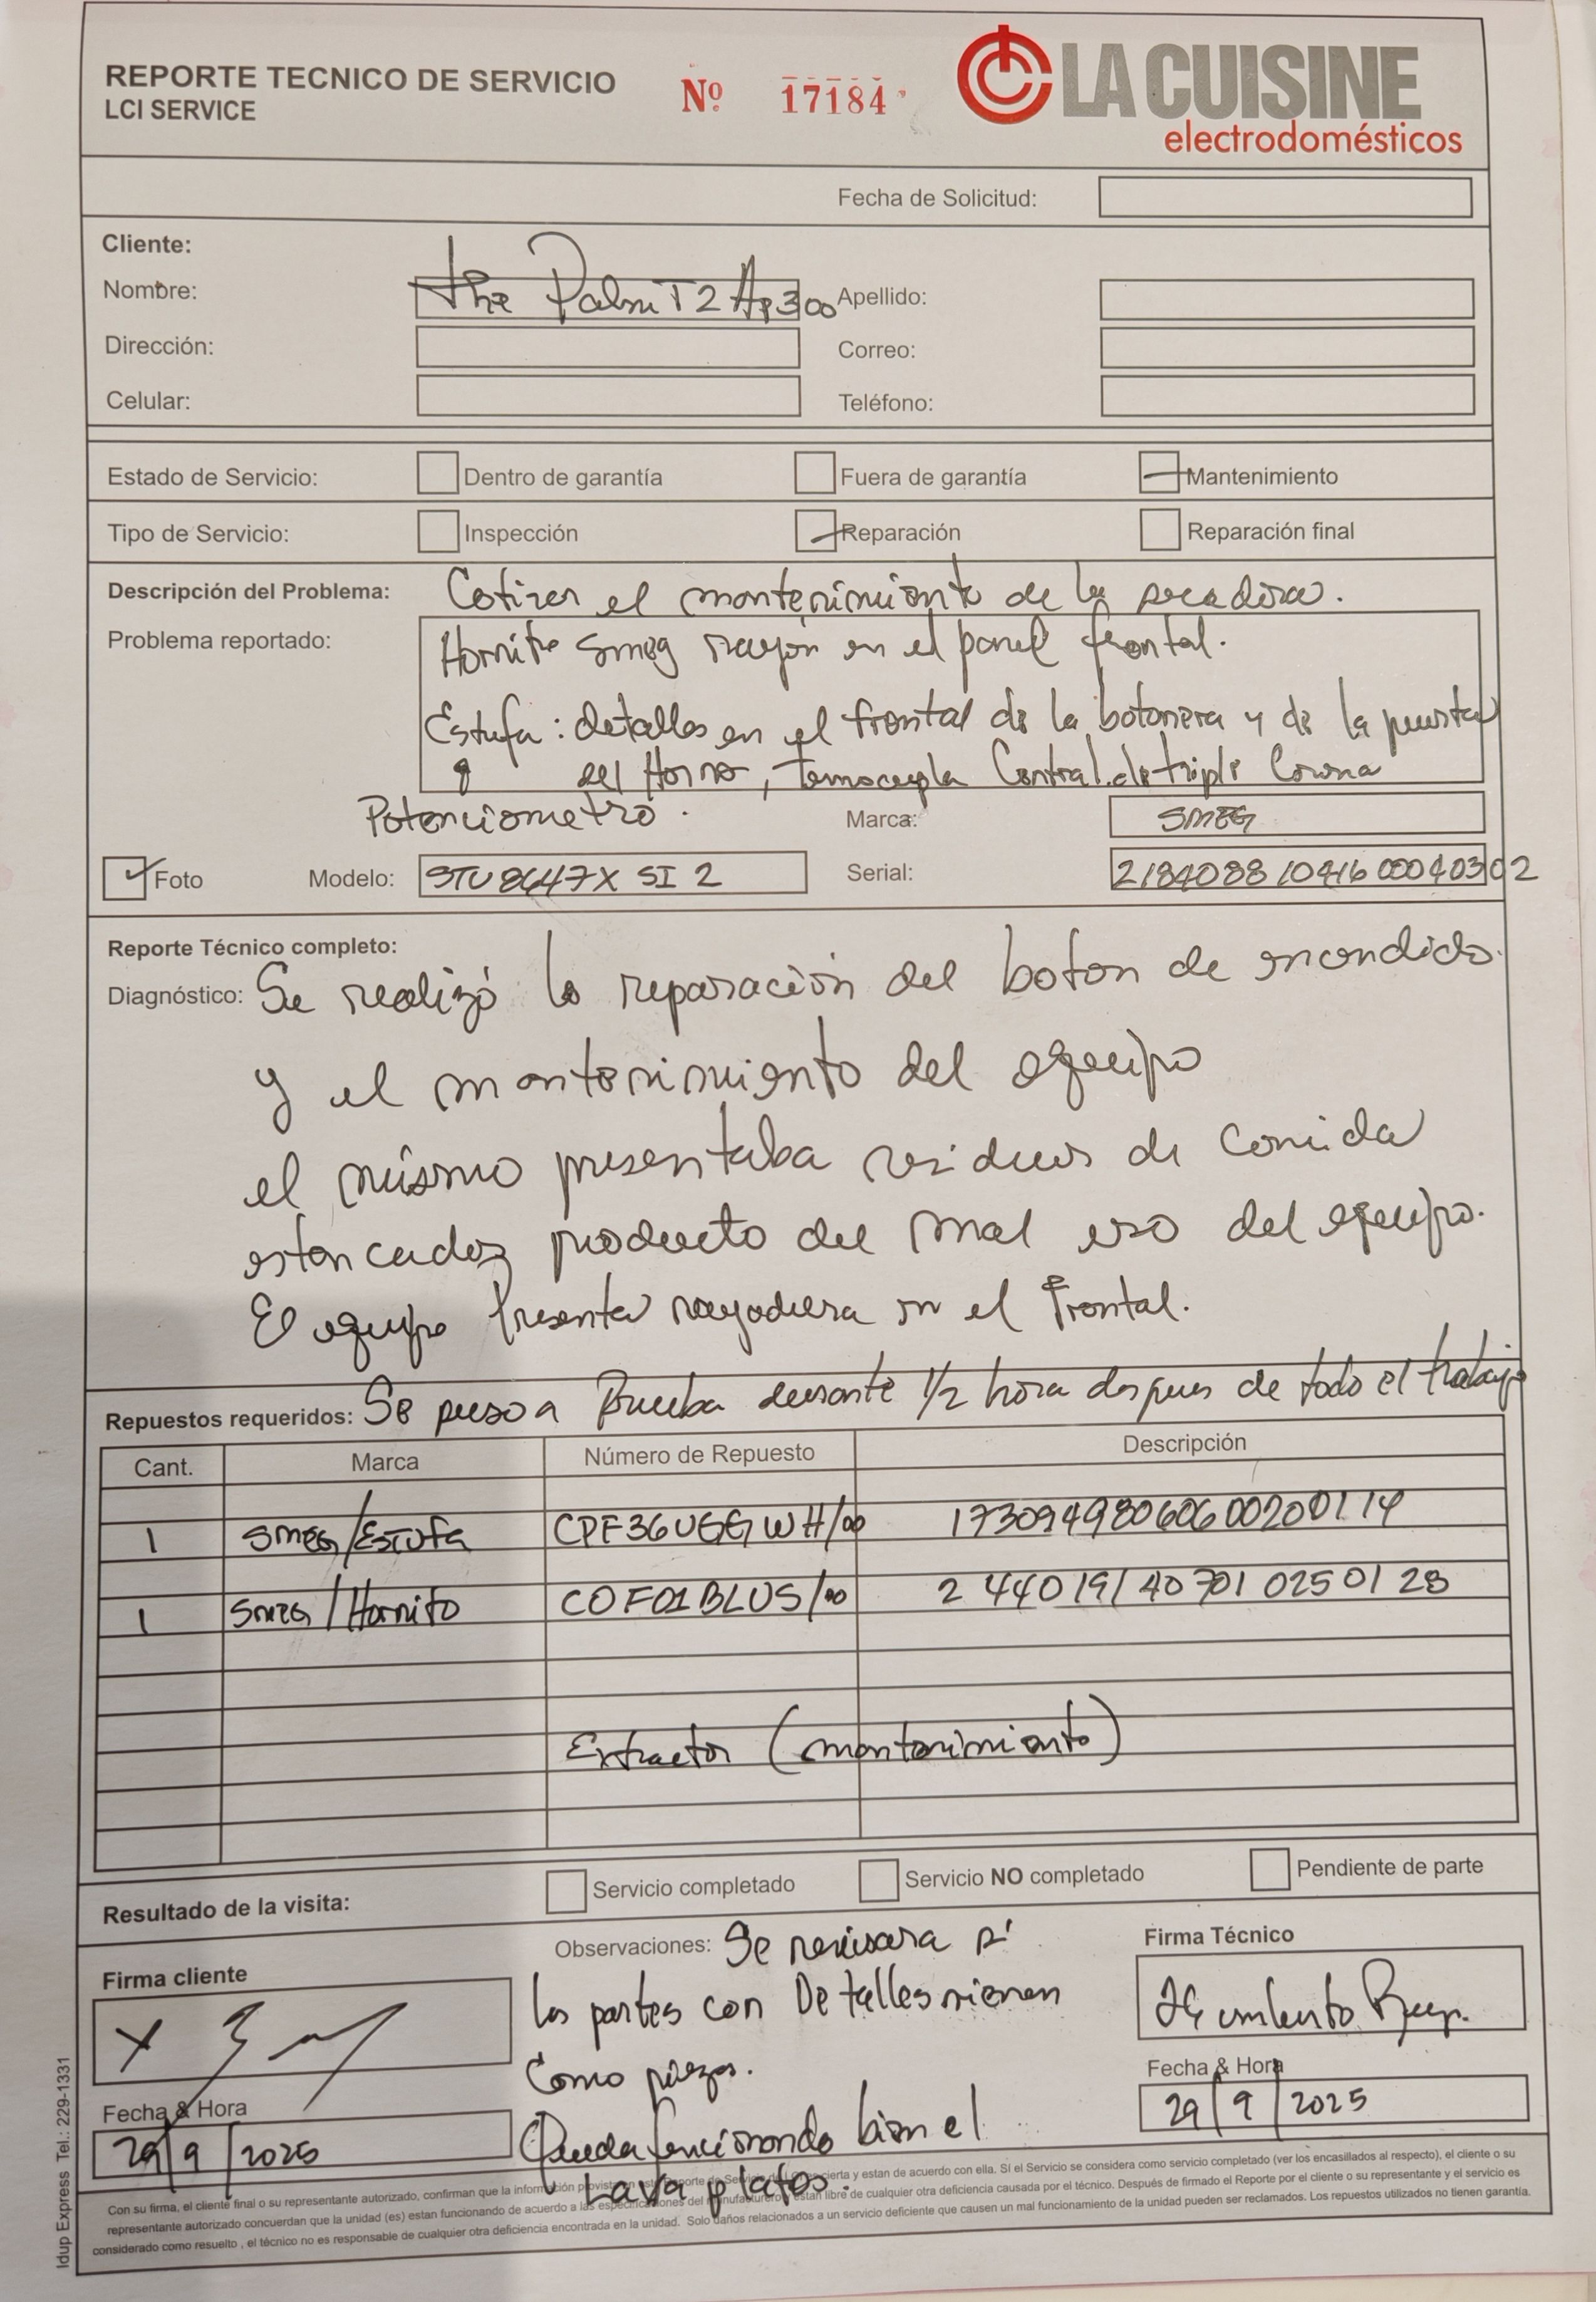 REPORTE TECNICO DE SERVICIO
LCI SERVICE
Nº 17184
LA CUISINE
electrodomésticos
Fecha de Solicitud:
Cliente:
Nombre: The Palm T2 Ap300 Apellido:
Dirección: Correo:
Celular: Teléfono:
Estado de Servicio: Dentro de garantía Fuera de garantía Mantenimiento
Tipo de Servicio: Inspección Reparación Reparación final
Descripción del Problema: Cotizar el mantenimiento de la secadora.
Problema reportado: Hornito Smeg rayón en el panel frontal.
Estufa: detalles en el frontal de la botonera y de la puerta
del Horno, termocupla Central de triple Corona
Potenciometro.
Marca: SMEG
Foto Modelo: STU8647X SI 2 Serial:
Reporte Técnico completo:
Diagnóstico: Se realizó la reparación del boton de encendido.
y el mantenimiento del equipo
el mismo presentaba residuos de comida
estancados producto del mal uso del equipo.
El equipo Presenta rayadura en el Frontal.
Repuestos requeridos: Se puso a Prueba durante 1/2 hora despues de todo el trabajo
Cant. Marca Número de Repuesto Descripción
1 SMEG/ESTUFA CPF36UGGWH/00 17309498060600200114
1 SMEG/Hornito COF01BLUS/00 2 44019140701 0250128
Extractor (mantenimiento)
Resultado de la visita: Servicio completado Servicio NO completado Pendiente de parte
Firma cliente
X
Fecha & Hora
29/9/2025
Observaciones: Se revisara si
las partes con Detalles vienen
Como piezas.
Queda funcionando bien el
Lava platos.
Firma Técnico
Humberto
Fecha & Hora
29/9/2025
Con su firma, el cliente final o su representante autorizado, confirman que la información provista en este Reporte de Servicio de cierta y estan de acuerdo con ella. Sí el Servicio se considera como servicio completado (ver los encasillados al respecto), el cliente o su
representante autorizado concuerdan que la unidad (es) estan funcionando de acuerdo a las especificaciones del manufacturero y están libre de cualquier otra deficiencia causada por el técnico. Después de firmado el Reporte por el cliente o su representante y el servicio es
considerado como resuelto , el técnico no es responsable de cualquier otra deficiencia encontrada en la unidad. Solo daños relacionados a un servicio deficiente que causen un mal funcionamiento de la unidad pueden ser reclamados. Los repuestos utilizados no tienen garantía.
Idup Express Tel.: 229-1331